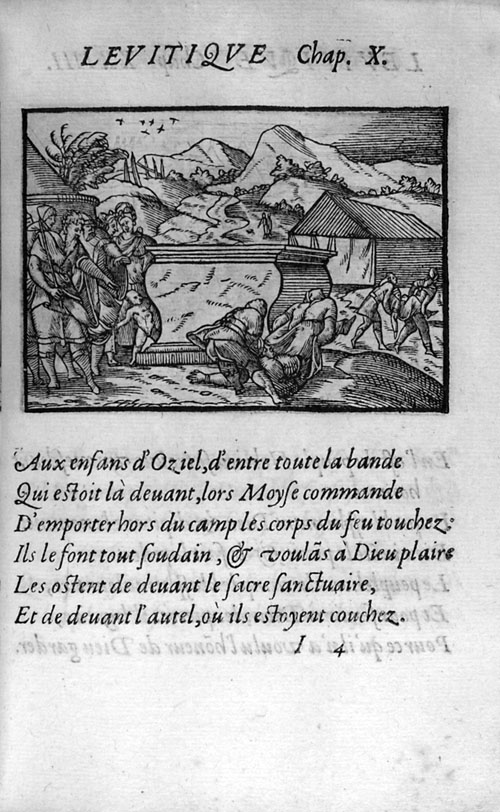 LEVITIQVE Chap. X.
Aux enfans d'Oziel, d'entre toute la bande
Qui estoit là deuant, lors Moyse commande
D'emporter hors du camp les corps du feu touchez:
Ils le font tout soudain, & voulãs à Dieu plaire
Les ostent de deuant le sacre sanctuaire,
Et de deuant l'autel, où ils estoyent couchez.
I 4